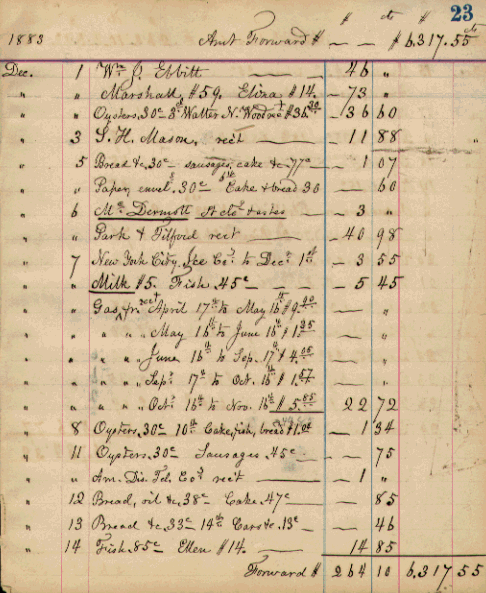 $ cts $ cts 23
1883 Amt Forward $ — — $ 6.317.55
Dec. 1 Wm J. Ebbitt — 46 "
" " Marshall, $59. Eliza $14. — 73 "
" " Oysters. 30c 3d Walter N. $36.30 — 36 60
" 3 S. H. Mason, rect — 11 88 "
" 5 Bread &c. 30c — sausages, cake &c 77c — 1 07
" " Paper, envels. 30c — 6th Cake & bread 30 — 60
" 6 Mc Dermott — 3 "
" " Park & Tilford rect — 40 98
" 7 New York City Ice Co.'s to Dec. 1st — 3 55
" " Milk $5. Fish. 45c — 5 45
" " Gas, fr. rect April 17th to May 16th $9.20 — "
" " " " " May 16th to June 16th $1.95 — "
" " " " " June 16th to Sep. 17th $4.05 — "
" " " " " Sepr. 17th to Oct. 16th $1.67 — "
" " " " " Oct. 16th to Nov. 16th $5.85 22 72
" 8 Oysters. 30c — 10th Cake, fish, bread $1.04 — 1 34
" 11 Oysters. 30c — Sausages. 45c — 75
" " Am. Dis. Tel. Co.'s rect — 1 "
" 12 Bread, oil &c. 38c — Cake. 47c — 85
" 13 Bread &c. 33c — 14th Cars &c. 13c — 46
" 14 Fish. 85c — Ellen $14. — 14 85
Forward $ 264 10 6.317 55